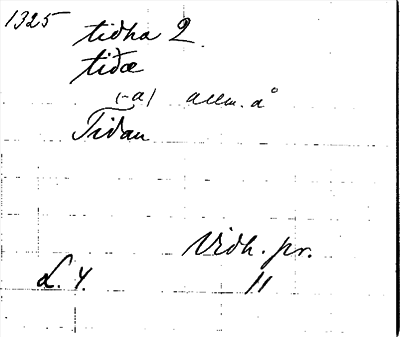 1325
tidha 2.
tiðæ
(-a) allm. å
Tiðan
Vidh. pr.
L. Y. 11